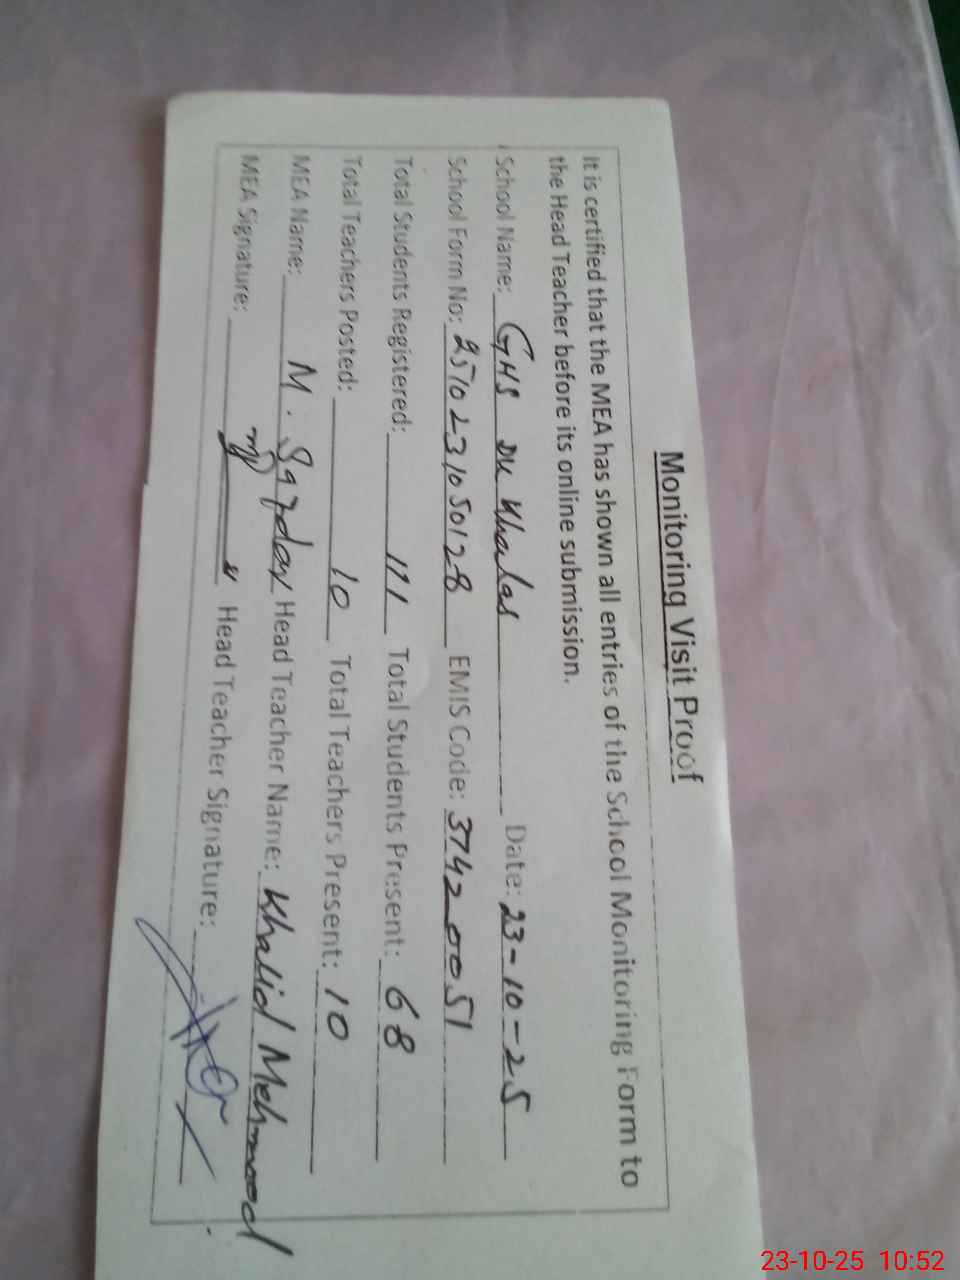 Monitoring Visit Proof
It is certified that the MEA has shown all entries of the School Monitoring Form to
the Head Teacher before its online submission.
School Name: GHS DK Khalas Date: 23-10-25
School Form No: 2510231050128 EMIS Code: 37420051
Total Students Registered: 111 Total Students Present: 68
Total Teachers Posted: 10 Total Teachers Present: 10
MEA Name: M. Head Teacher Name: Khalid Mehmood
MEA Signature: Head Teacher Signature:
23-10-25 10:52